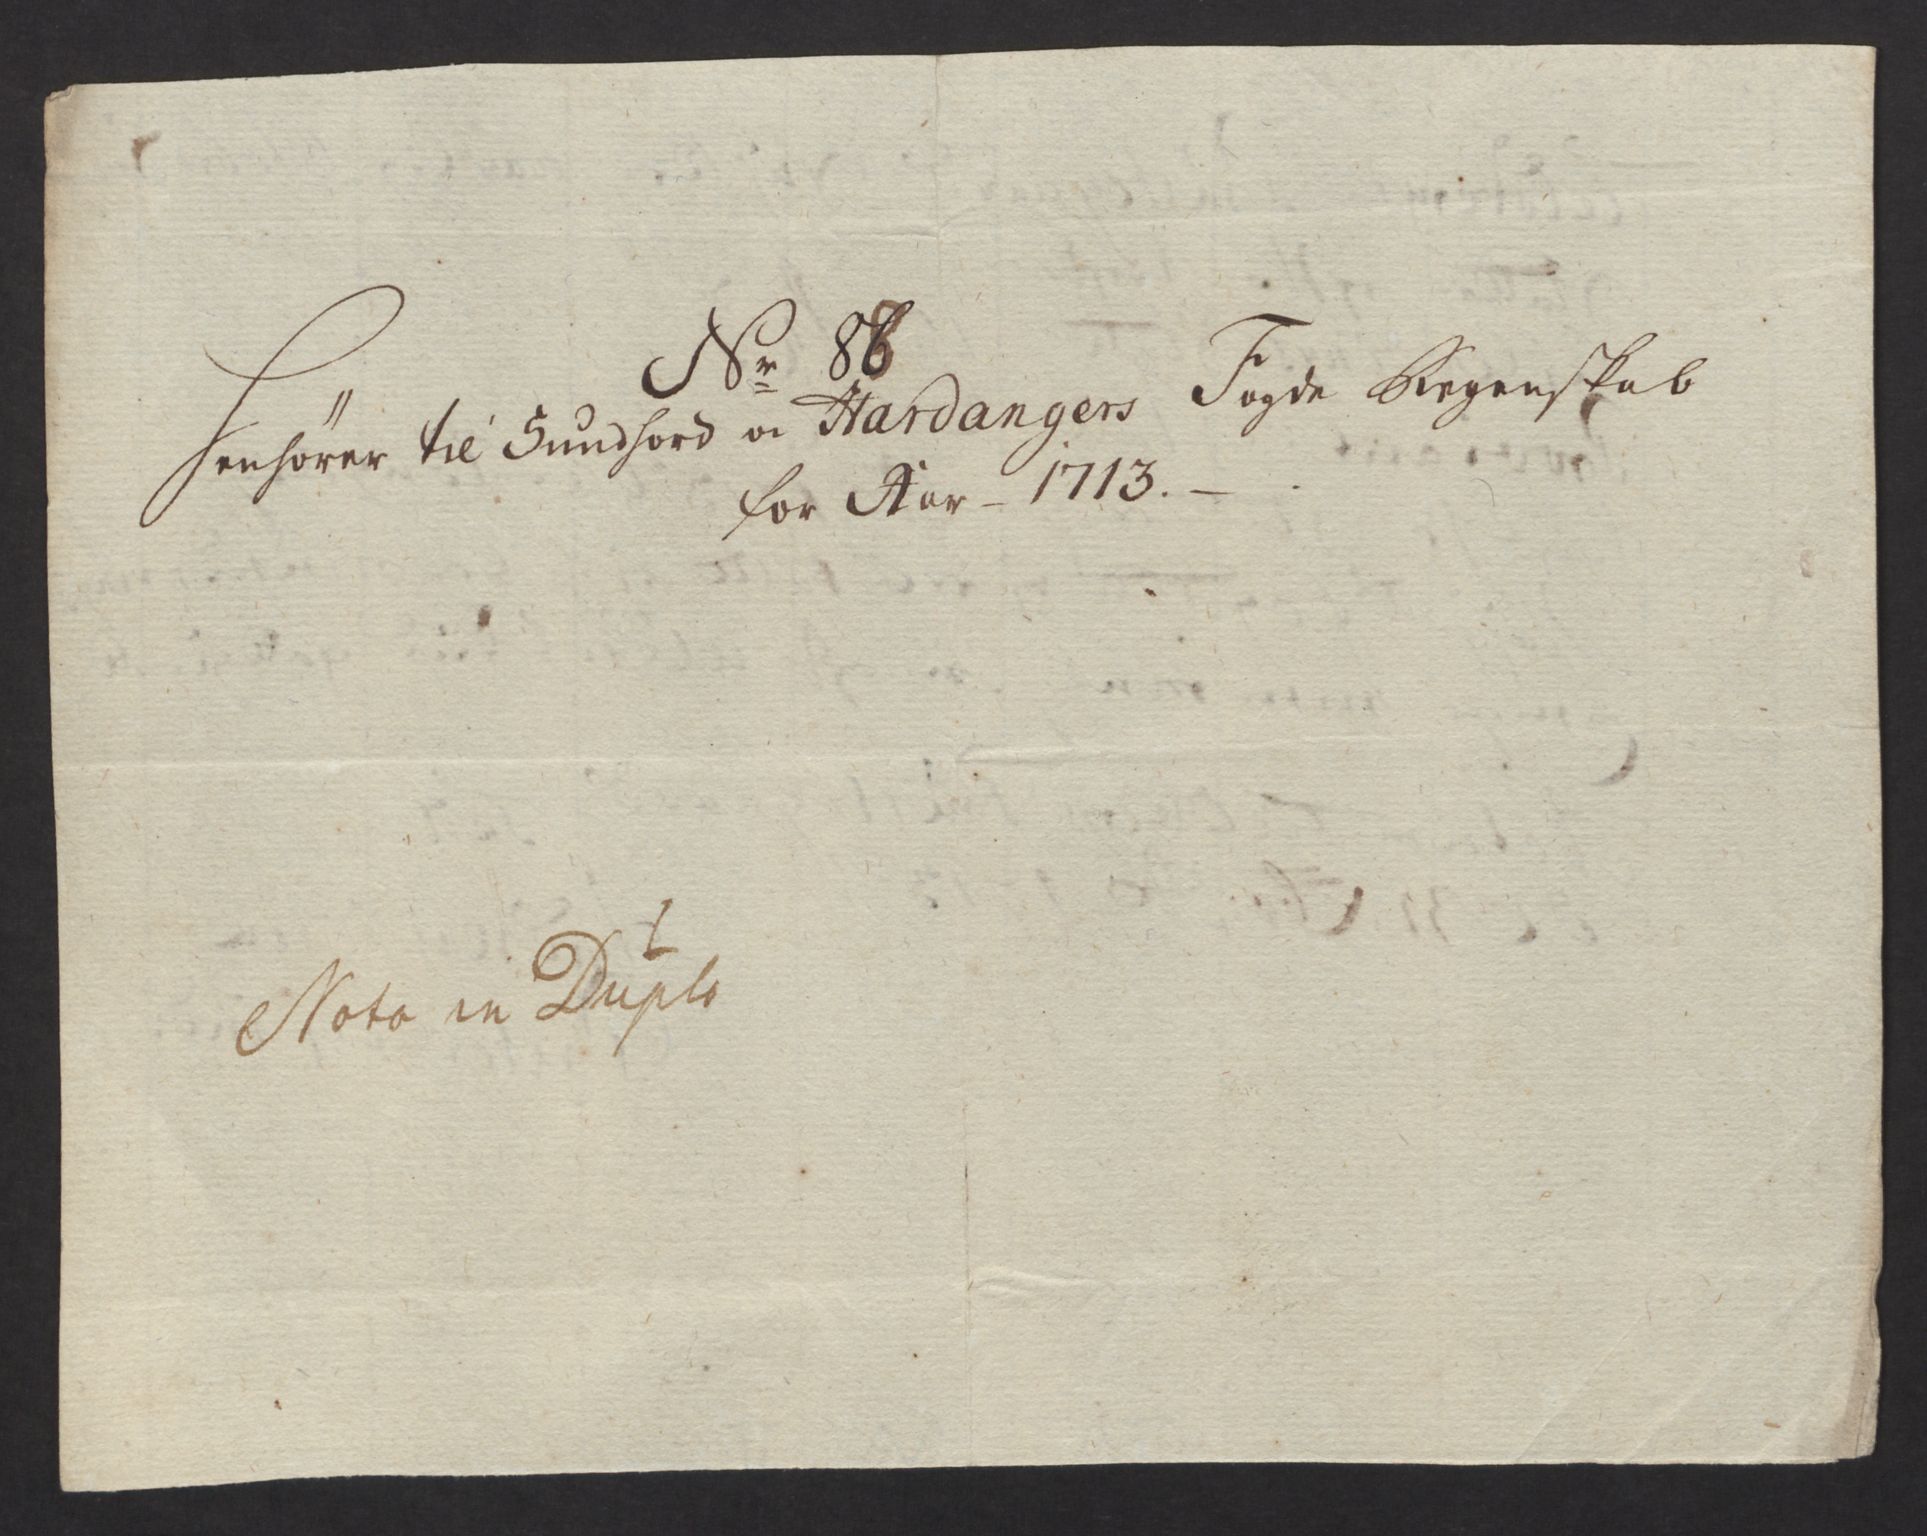 Nr 86
Henhører til Sundhord oc Hardangers Fogde Regenskab
for Aar - 1713. -
Nota in Duplo